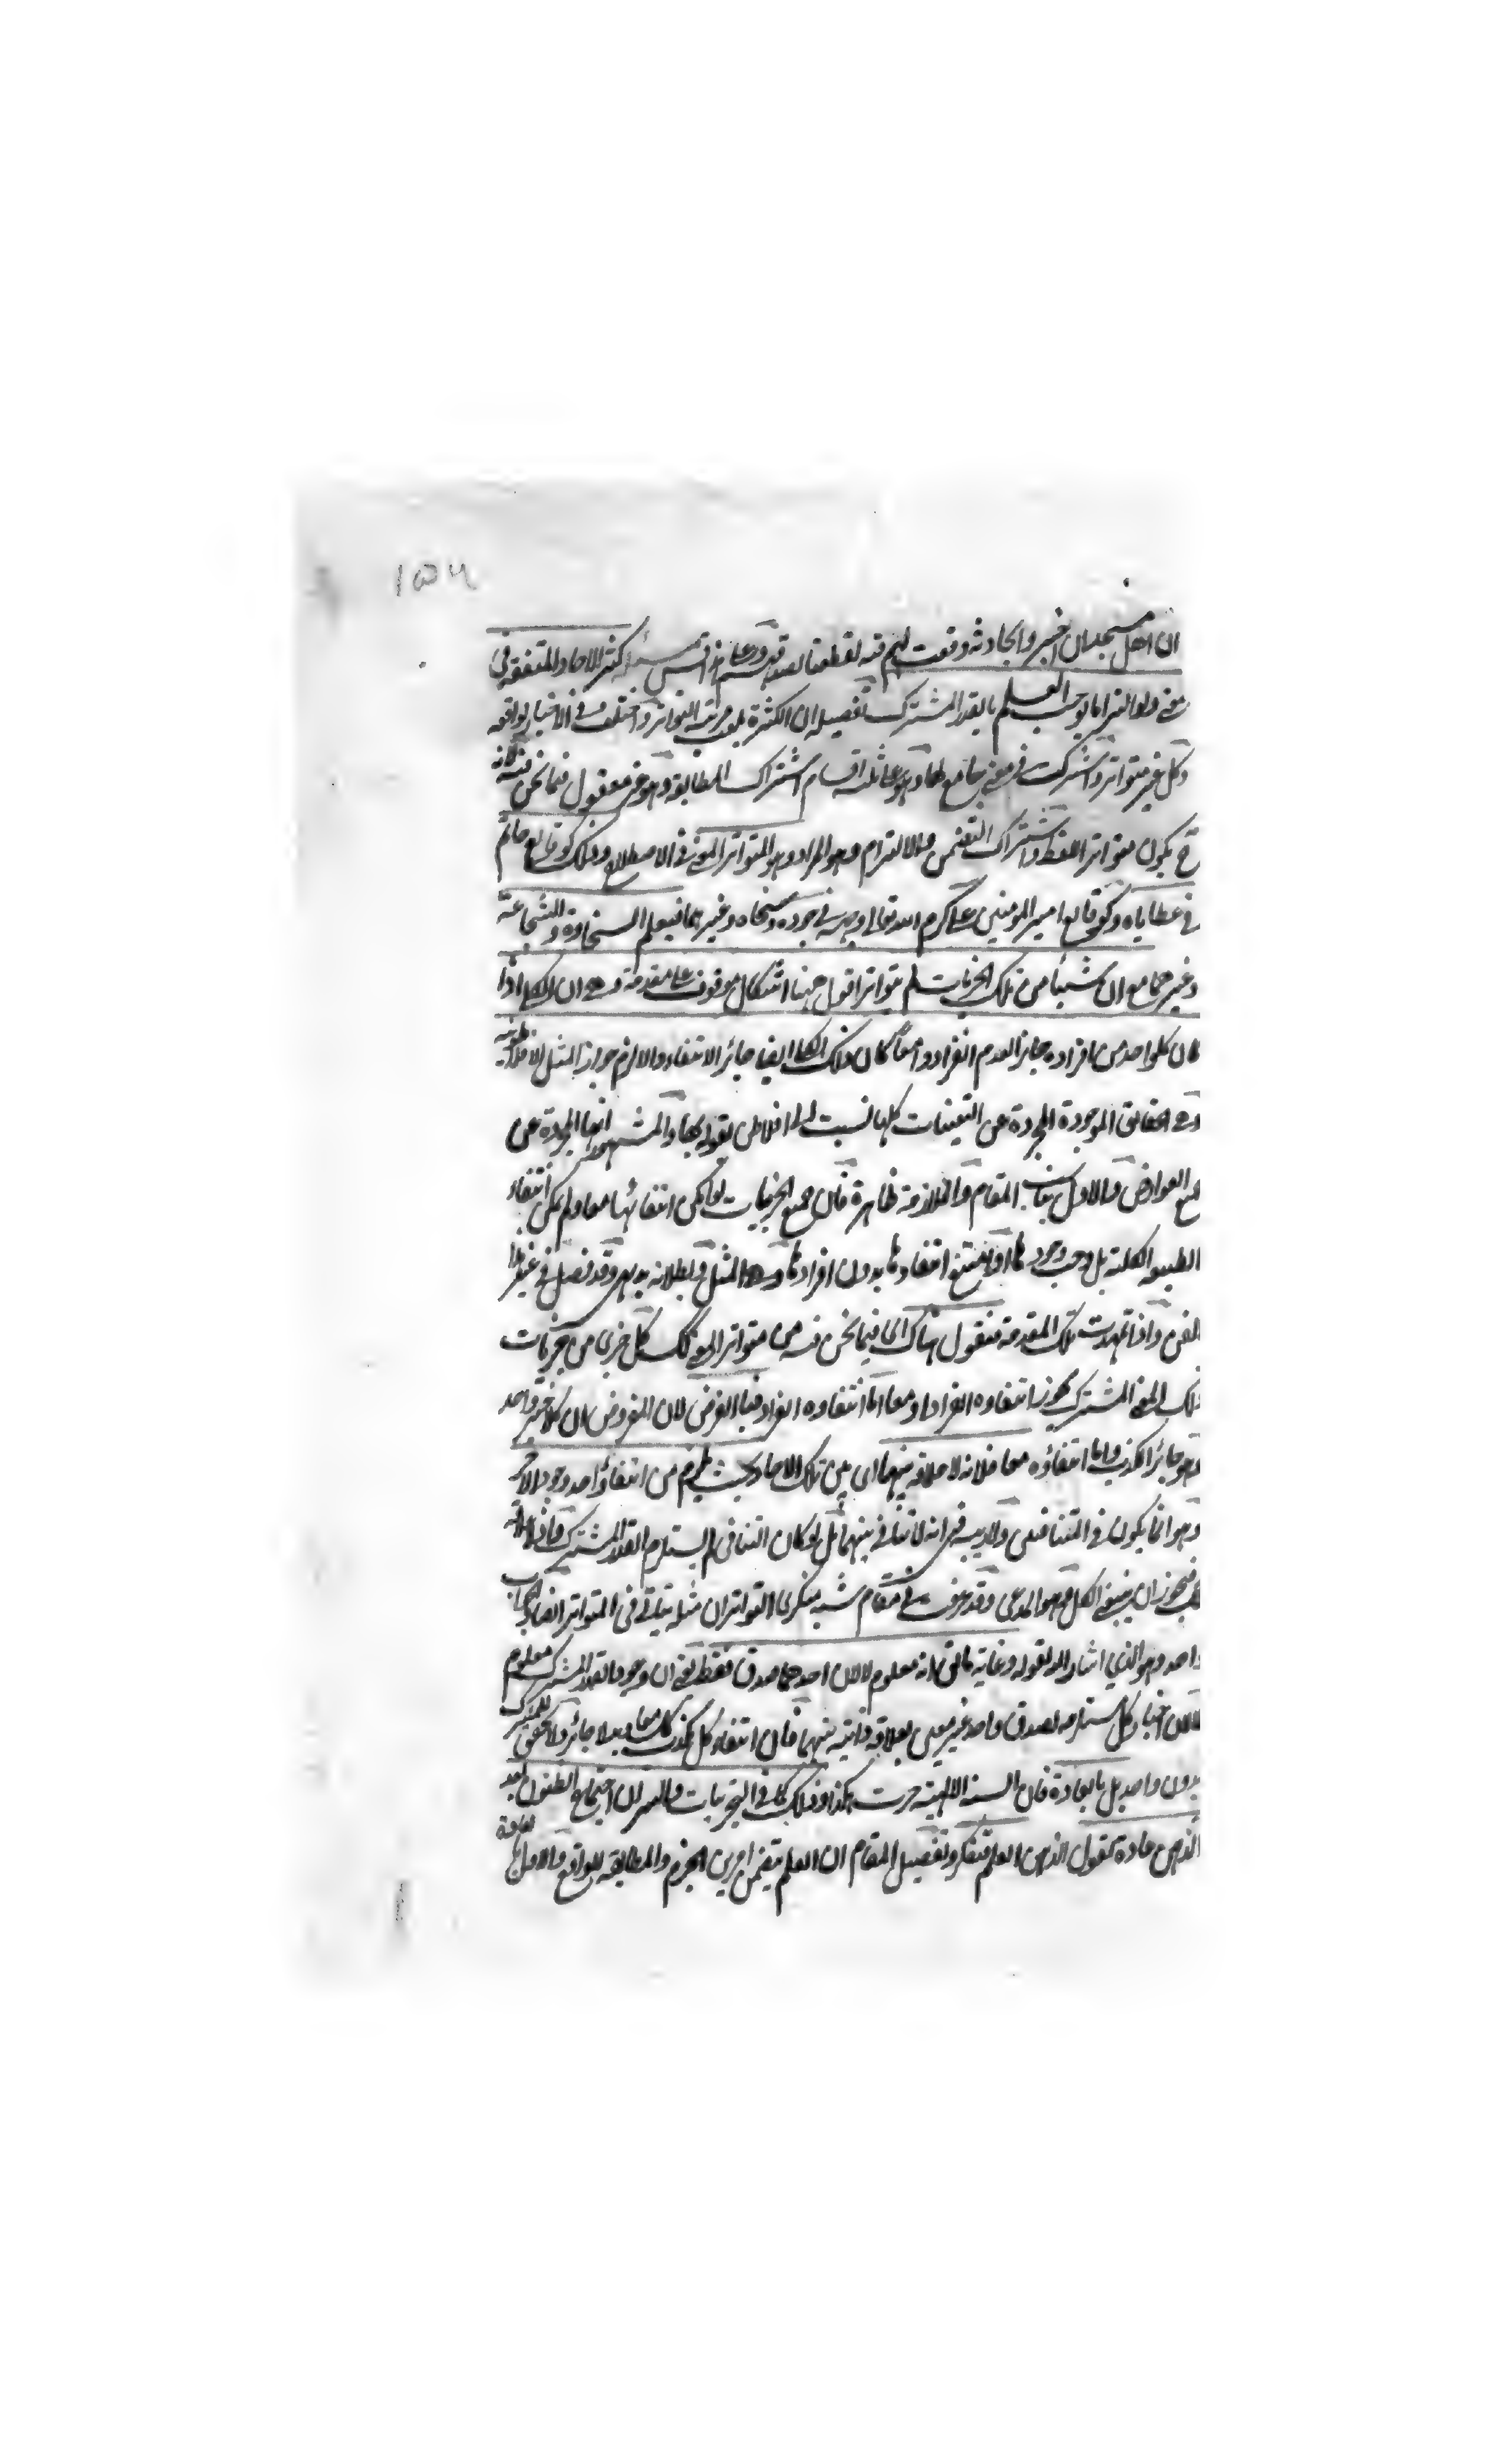 ١٥٤
ان اهل مسجد ان اخبروا بحادثة وقعت لهم فيه لقطعنا بصدقهم مسئلة كثرة الاحاد المتفقة في
معنى ولو التزاما يوجب العلم بالقدر المشترك تفصيله ان الكثرة بلغت مرتبة التواتر واختلف في الاخبار بواقعة
وكل غير متواتر واشتركت في معنى جامع لها وهو على ثلثة اقسام اشتراك المطابقة وهو غير معقول فيما نحن فيه فانه
ح يكون متواتر اللفظ واشتراك التضمن والالتزام وهو المراد وهو المتواتر المعنى في الاصطلاح وذلك كوقائع حاتم
في عطاياه وكوقائع امير المومنين على كرم الله تعالى وجهه في جوده وسخاه وغيرهما فيعلم السخاوة والشجاعة
وغيرهما مع ان شيئا من تلك الجزئيات لم يتواتر اقول ههنا اشكال موقوف على مقدمة وهى ان الكلى اذا
كان كلواحد من افراده جائز العدم انفرادا ومعا كان ذلك الكلى ايضا جائز الانتفاء والا لزم جواز المثل الافلاطونية
وهى الحقائق الموجودة المجردة عن التعينات كلها نسبت الى افلاطن لقوله بها والمشهور انها المجردة عن
جميع العوارض والاول يناسب المقام والملازمة ظاهرة فان جميع الجزئيات لو امكن انتفائها معا ولم يمكن انتفاء
الطبيعة الكلية بل وجب وجودها او امتنع انتفاءها بدون افرادها وهو المثل وبطلانه بديهى وقد فصل في غير هذا
الفن واذا تمهدت تلك المقدمة فنقول هناك اى فيما نحن فيه من متواتر المعنى كك كل جزئى من جزئيات
ذلك المعنى المشترك يجوز انتفاءه انفرادا ومعا اما انتفاءه انفرادا فبالفرض لان المفروض ان كلا خبر واحد
وهو جائز الكذب واما انتفاؤه معا فلانه لا علاقة بينهما اى بين تلك الاحاد بحيث يلزم من انتفاء واحد وجود الاخر
وهو انما يكون في المتنافيين ولا ريب في انه لا تنافى بينهما بل لو كان التنافى لم يستلزم القدر المشترك
فيجوز ان ينتفى الكل وهو المدعى وقد عرفت في مقام شبه منكرى التواتر ان مثله يتاتى في المتواتر ايضا والجواب
واحد وهو الذي اشار اليه بقوله وغاية ما في انه معلوم لا لان احدهما صدق فقط يعنى ان وجود القدر المشترك معلوم
لا لان اخبار كل مستلزمة لصدق واحد غير معين بعلاقة ذاتية بينهما فان انتفاء كل بكذب كل معا وبدلا جائز ولا تحقق للمشترك
بدون واحد بل بالعادة فان السنة الالهية جرت هكذا وذلك كما في التجربيات والسر ان اجتماع الظنون يعد
الذهن عادة لقبول الذهن العلم فتفكر وتفصيل المقام ان العلم يتضمن امرين الجزم والمطابقة للواقع والاول